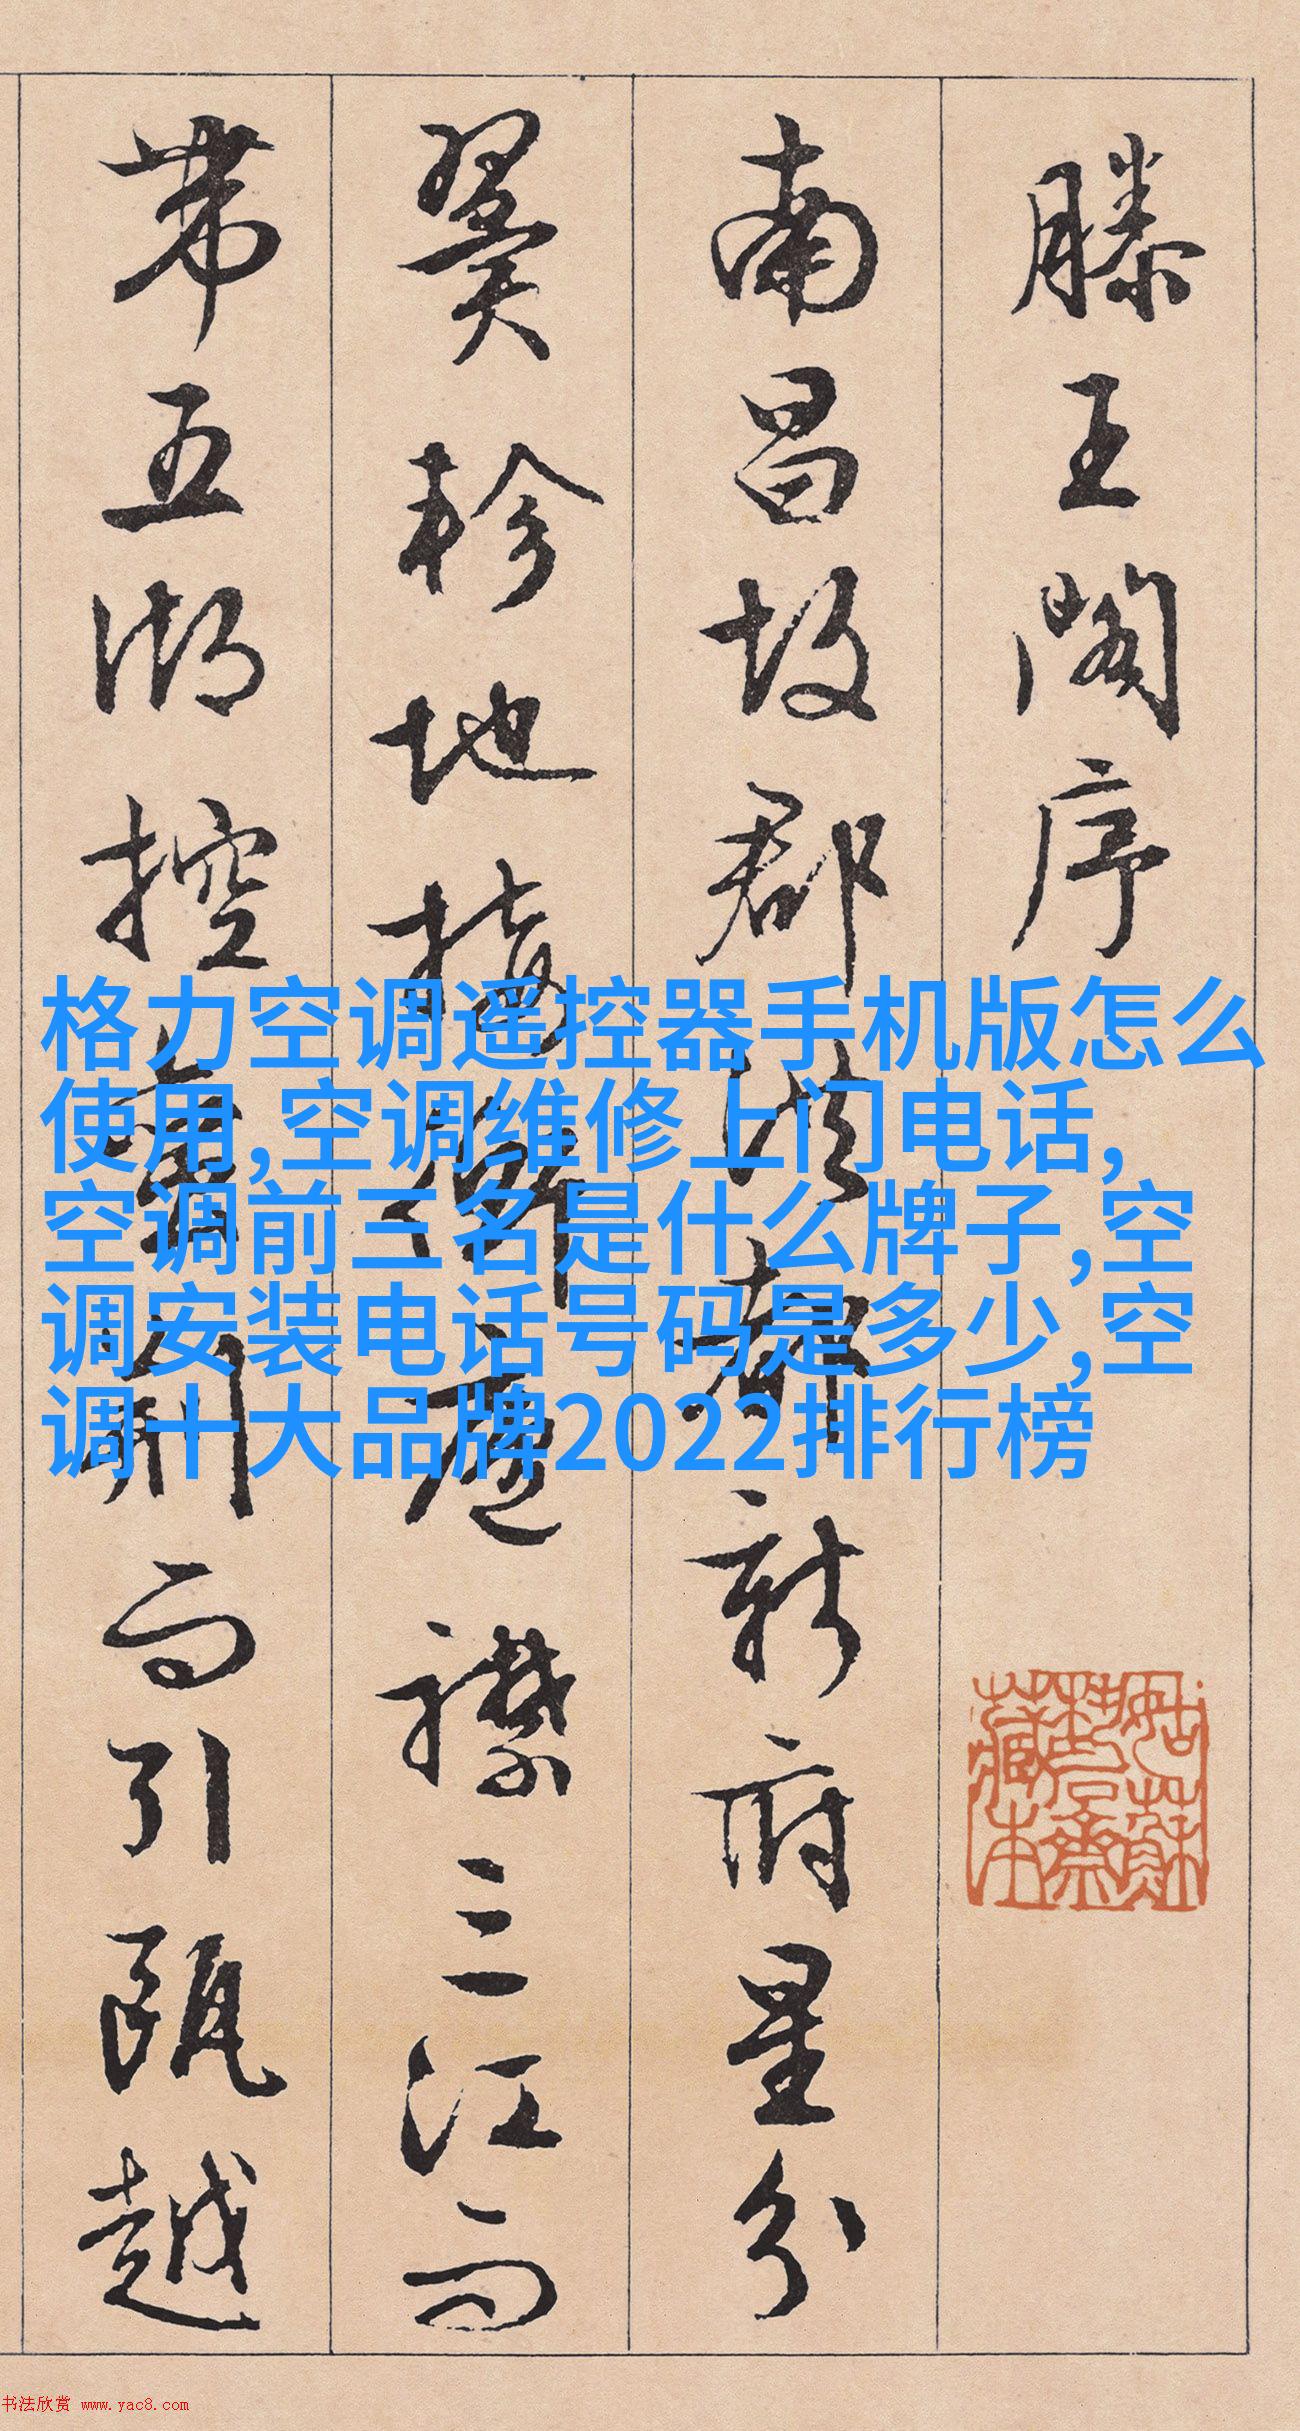 滕王阁序
南昌故郡洪都新府星分
翼轸地接衡庐襟三江而
带五湖控蛮荆而引瓯越
格力空调遥控器手机版怎么
使用,空调维修上门电话,
空调前三名是什么牌子,空
调安装电话号码是多少,空
调十大品牌2022排行榜
书法欣赏 www.yac8.com